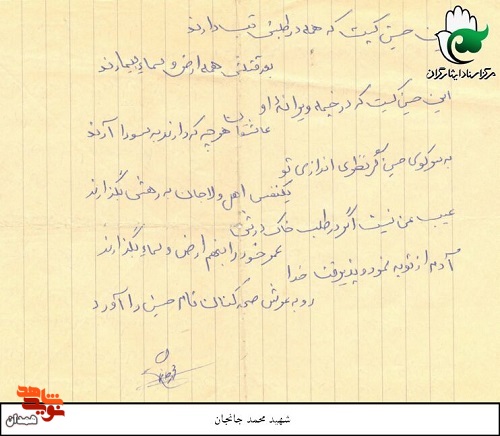 این حسین کیست که همه در طلبش تب دارند
بعد قتلش همه ارض و سماء بیمارند
این حسین کیست که در خیمه ویرانهٔ او
عاشقان هر چه که دارند به سودا آرند
به سر کوی حسین گر نظری اندازی تو
یکنفس اهل ولا جان به رهش بگذارند
عیب من نیست اگر در طلب خاک درش
عمر خود را بنهم ارض و سماء بگذارند
آدم از توبه نمود و پذیرفت خدا
رو به عرش صحه کنان نام حسین را آورد
مرکز اسناد ایثارگران
نوید شاهد
همدان
شهید محمد جانجان